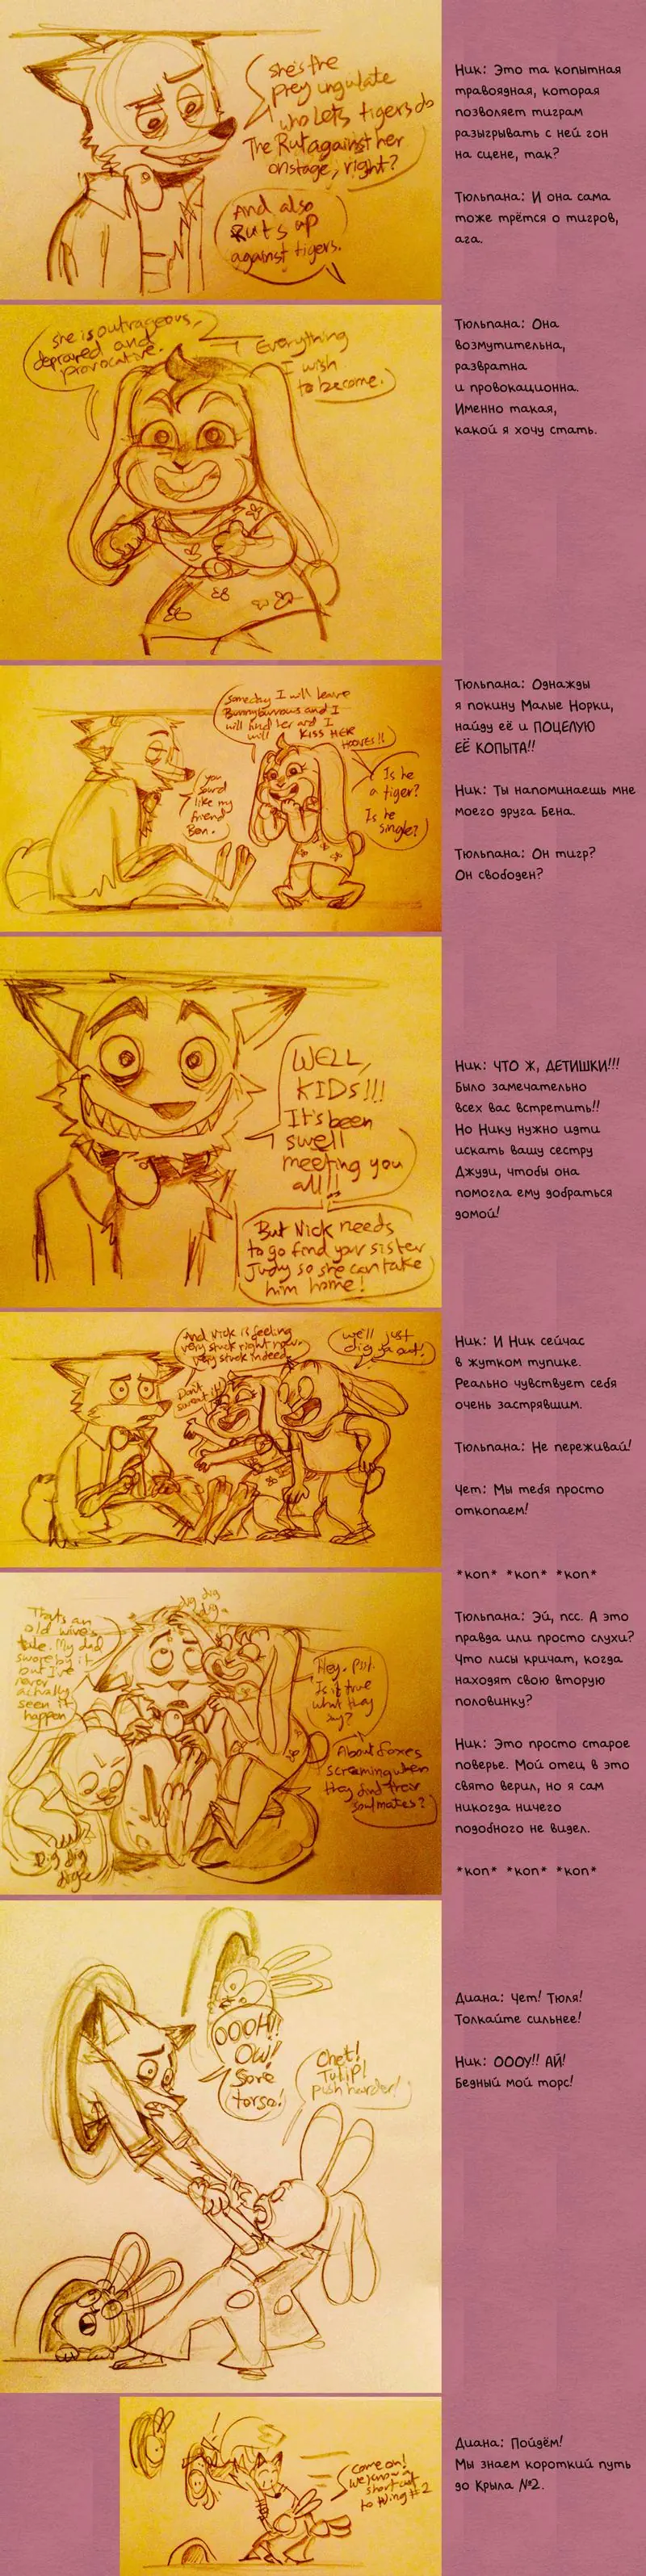 she's the
prey ungulate
who lets tigers do
The Rut against her
onstage, right?
And also
Ruts up
against tigers.
Ник: Это та копытная
травоядная, которая
позволяет тиграм
разыгрывать с ней гон
на сцене, так?
Тюльпана: И она сама
тоже трётся о тигров,
ага.
she is outrageous,
depraved and
provocative.
Everything
I wish
to become.
Тюльпана: Она
возмутительна,
развратна
и провокационна.
Именно такая,
какой я хочу стать.
Someday I will leave
Bunnyburrows and I
will find her and I
will KISS HER
HOOVES!!
you
sound
like my
friend
Ben.
Is he
a tiger?
Is he
single?
Тюльпана: Однажды
я покину Малые Норки,
найду её и ПОЦЕЛУЮ
ЕЁ КОПЫТА!!
Ник: Ты напоминаешь мне
моего друга Бена.
Тюльпана: Он тигр?
Он свободен?
WELL,
KIDS!!!
It's been
swell
meeting you
all!!
But Nick needs
to go find your sister
Judy so she can take
him home!
Ник: ЧТО Ж, ДЕТИШКИ!!!
Было замечательно
всех вас встретить!!
Но Нику нужно идти
искать вашу сестру
Джуди, чтобы она
помогла ему добраться
домой!
And Nick is feeling
very stuck right now.
very stuck indeed.
Don't
sweat it!
we'll just
dig ya out!
Ник: И Ник сейчас
в жутком тупике.
Реально чувствует себя
очень застрявшим.
Тюльпана: Не переживай!
Чет: Мы тебя просто
откопаем!
dig dig
dig
Thats an
old wive's
tale. My dad
swore by it
but I've
never
actually
seen it
happen
Hey. Psst.
Is it true
what they
say?
About foxes
screaming when
they find their
soulmates?
Dig dig
dig
*коп* *коп* *коп*
Тюльпана: Эй, псс. А это
правда или просто слухи?
Что лисы кричат, когда
находят свою вторую
половинку?
Ник: Это просто старое
поверье. Мой отец в это
свято верил, но я сам
никогда ничего
подобного не видел.
*коп* *коп* *коп*
OOOH!!
OW!
Sore
torso!
Chet!
Tulip!
push harder!
Диана: Чет! Тюля!
Толкайте сильнее!
Ник: ОООУ!! АЙ!
Бедный мой торс!
Come on!
We know a
short cut
to Wing #2
Диана: Пойдём!
Мы знаем короткий путь
до Крыла №2.